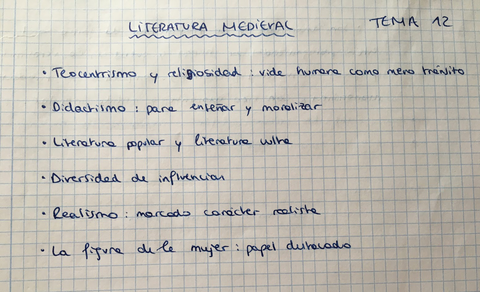 LITERATURA MEDIEVAL TEMA 12
• Teocentrismo y religiosidad : vida humana como mero tránsito
• Didactismo : para enseñar y moralizar
• Literatura popular y literatura culta
• Diversidad de influencias
• Realismo : marcado carácter realista
• La figura de la mujer : papel destacado